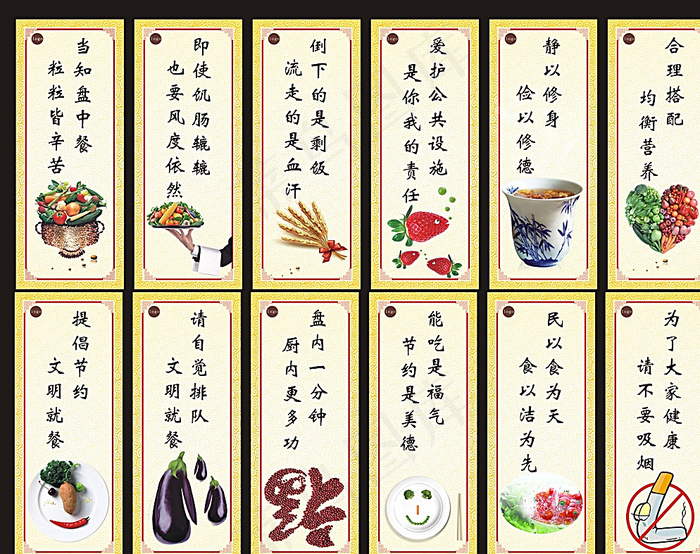 logo
当知盘中餐
粒粒皆辛苦
logo
即使饥肠辘辘
也要风度依然
logo
倒下的是剩饭
流走的是血汗
logo
爱护公共设施
是你我的责任
logo
静以修身
俭以修德
logo
合理搭配
均衡营养
logo
提倡节约
文明就餐
logo
请自觉排队
文明就餐
logo
盘内一分钟
厨内更多功
logo
能吃是福气
节约是美德
logo
民以食为天
食以洁为先
logo
为了大家健康
请不要吸烟